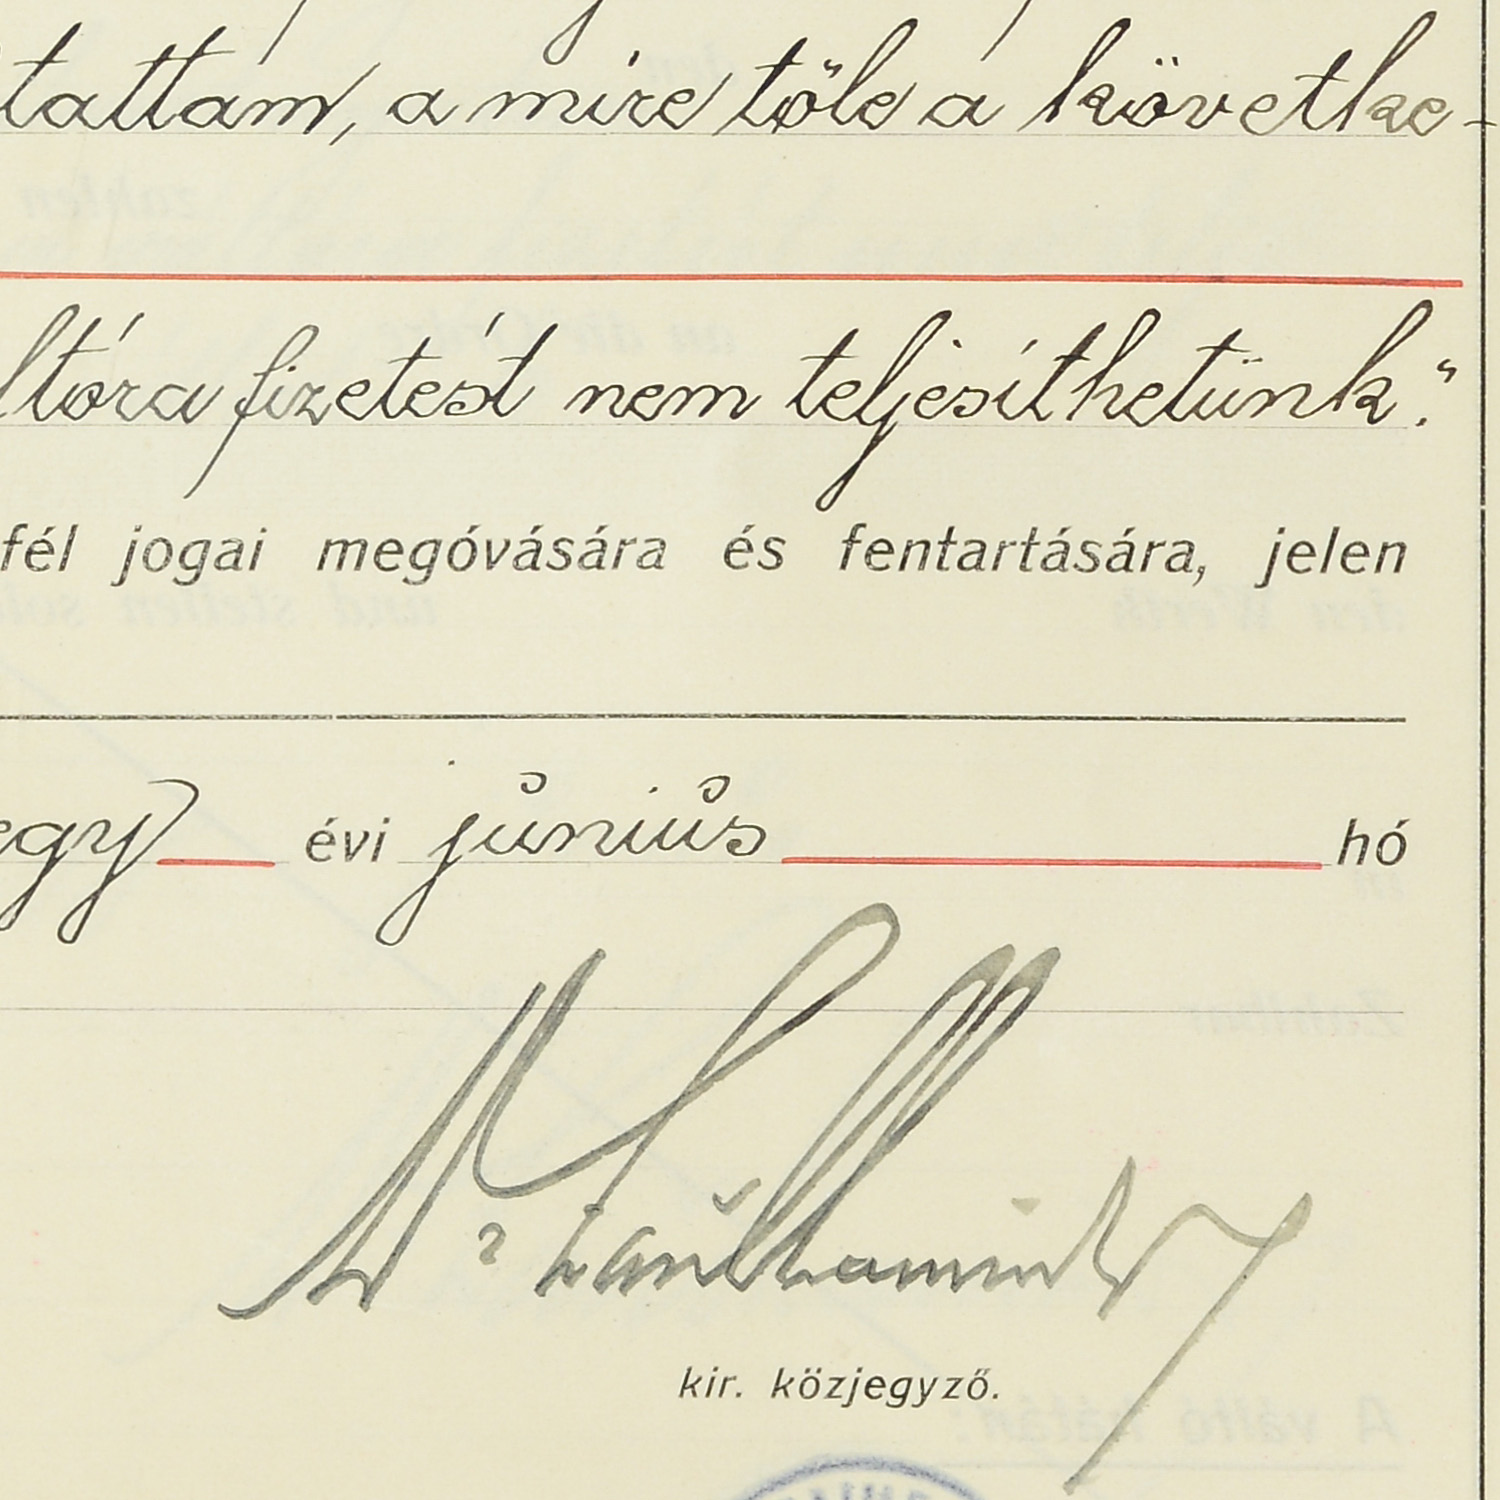 tattam, a mire tőle a követke-
ltóra fizetést nem teljesíthetünk."
fél jogai megóvására és fentartására, jelen
egy évi június hó
kir. közjegyző.